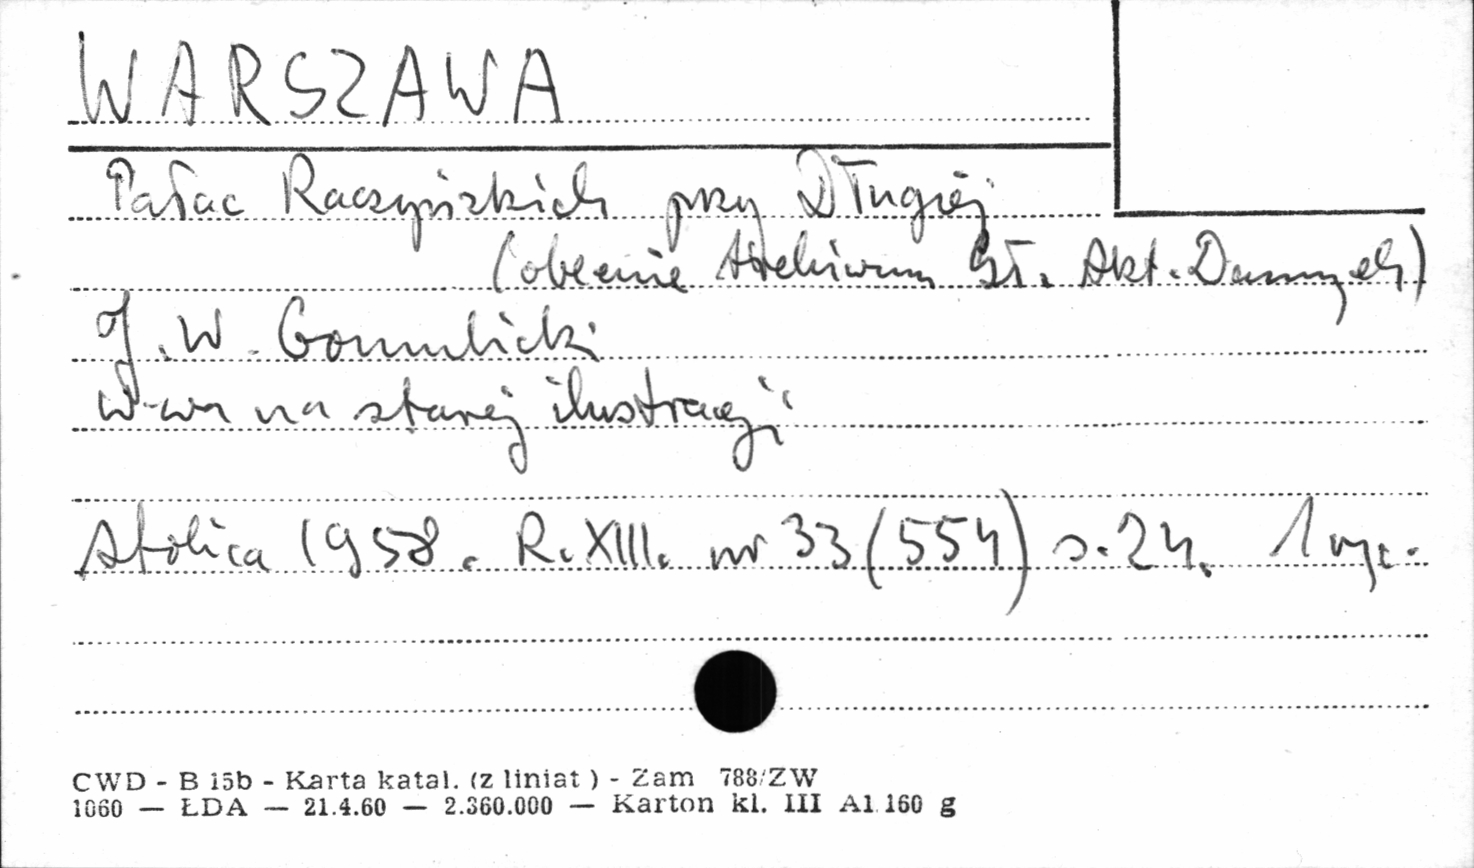 WARSZAWA
Pałac Raczyńskich przy Długiej
(obecnie Archiwum Gł. Akt. Dawnych)
J. W. Gomulicki
W-wa na starej ilustracji
Stolica 1958. R. XIII. nr 33 (554) s. 24. 1 ryc.
CWD - B 15b - Karta katal. (z liniat ) - Zam 788/ZW
1060 — ŁDA — 21.4.60 — 2.360.000 — Karton kl. III A1 160 g